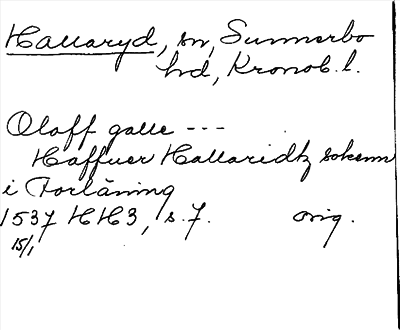 Hallaryd, sn, Sunnerbo
hd, Kronob. l.
Olaff galle ---
Haffuer Hallaridtz sokenn
i Forläning
1537 HH3, s. 7. orig.
15/1